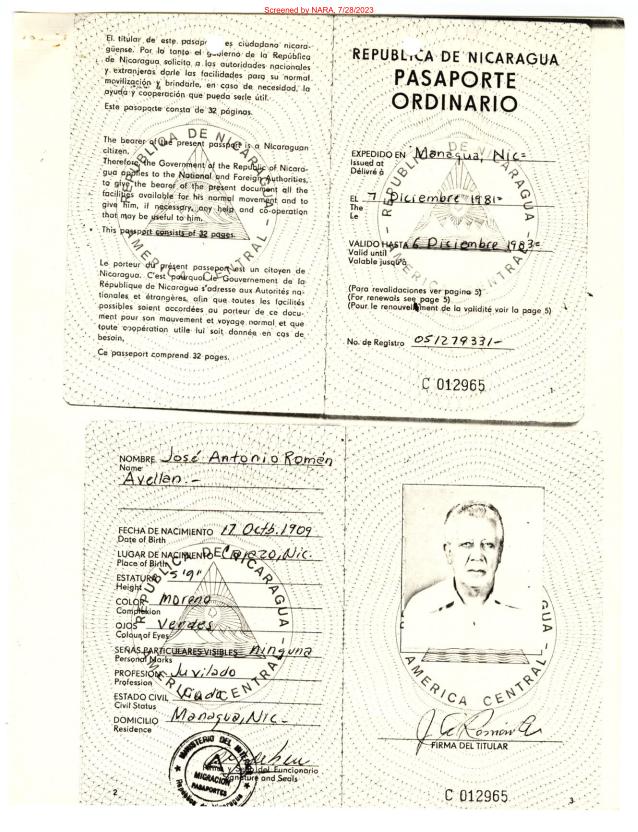 Screened by NARA, 7/28/2023
El titular de este pasaporte es ciudadano nicara-
güense. Por lo tanto el gobierno de la República
de Nicaragua solicita a las autoridades nacionales
y extranjeras darle las facilidades para su normal
movilización y brindarle, en caso de necesidad, la
ayuda y cooperación que pueda serle útil.
Este pasaporte consta de 32 páginas.
The bearer of the present passport is a Nicaraguan
citizen.
Therefore the Government of the Republic of Nicara-
gua applies to the National and Foreign Authorities,
to give the bearer of the present document all the
facilities available for his normal movement and to
give him, if necessary, any help and co-operation
that may be useful to him.
This passport consists of 32 pages.
Le porteur du présent passeport est un citoyen de
Nicaragua. C'est pourquoi le Gouvernement de la
République de Nicaragua s'adresse aux Autorités na-
tionales et étrangères, afin que toutes les facilités
possibles soient accordées au porteur de ce docu-
ment pour son mouvement et voyage normal et que
toute coopération utile lui soit donnée en cas de
besoin,
Ce passeport comprend 32 pages.
REPUBLICA DE NICARAGUA
AMERICA CENTRAL
REPUBLICA DE NICARAGUA
PASAPORTE
ORDINARIO
EXPEDIDO EN Managua, Nic=
Issued at
Délivré à
EL 7 Diciembre 1981=
The
Le
VALIDO HASTA 6 Diciembre 1983=
Valid until
Valable jusqu'a
(Para revalidaciones ver pagina 5)
(For renewals see page 5)
(Pour le renouvellement de la validité voir la page 5)
No. de Registro 051279331-
C 012965
1
REPUBLICA DE NICARAGUA
AMERICA CENTRAL
NOMBRE José Antonio Román
Name
Avellan.-
FECHA DE NACIMIENTO 17 Octb. 1909
Date of Birth
LUGAR DE NACIMIENTO Carazo, Nic.
Place of Birth
ESTATURA 5'9"
Height
COLOR Moreno
Complexion
OJOS Verdes
Colour of Eyes
SEÑAS PARTICULARES VISIBLES ninguna
Personal Marks
PROFESION Juvilado
Profession
ESTADO CIVIL
Civil Status
DOMICILIO Managua, Nic-
Residence
Firma y Sello del Funcionario
Signature and Seals
MINISTERIO DEL INTERIOR
MIGRACION
PASAPORTES
Republica de Nicaragua
2
REPUBLICA DE NICARAGUA
AMERICA CENTRAL
GUA
AMERICA CENTRAL
FIRMA DEL TITULAR
C 012965
3